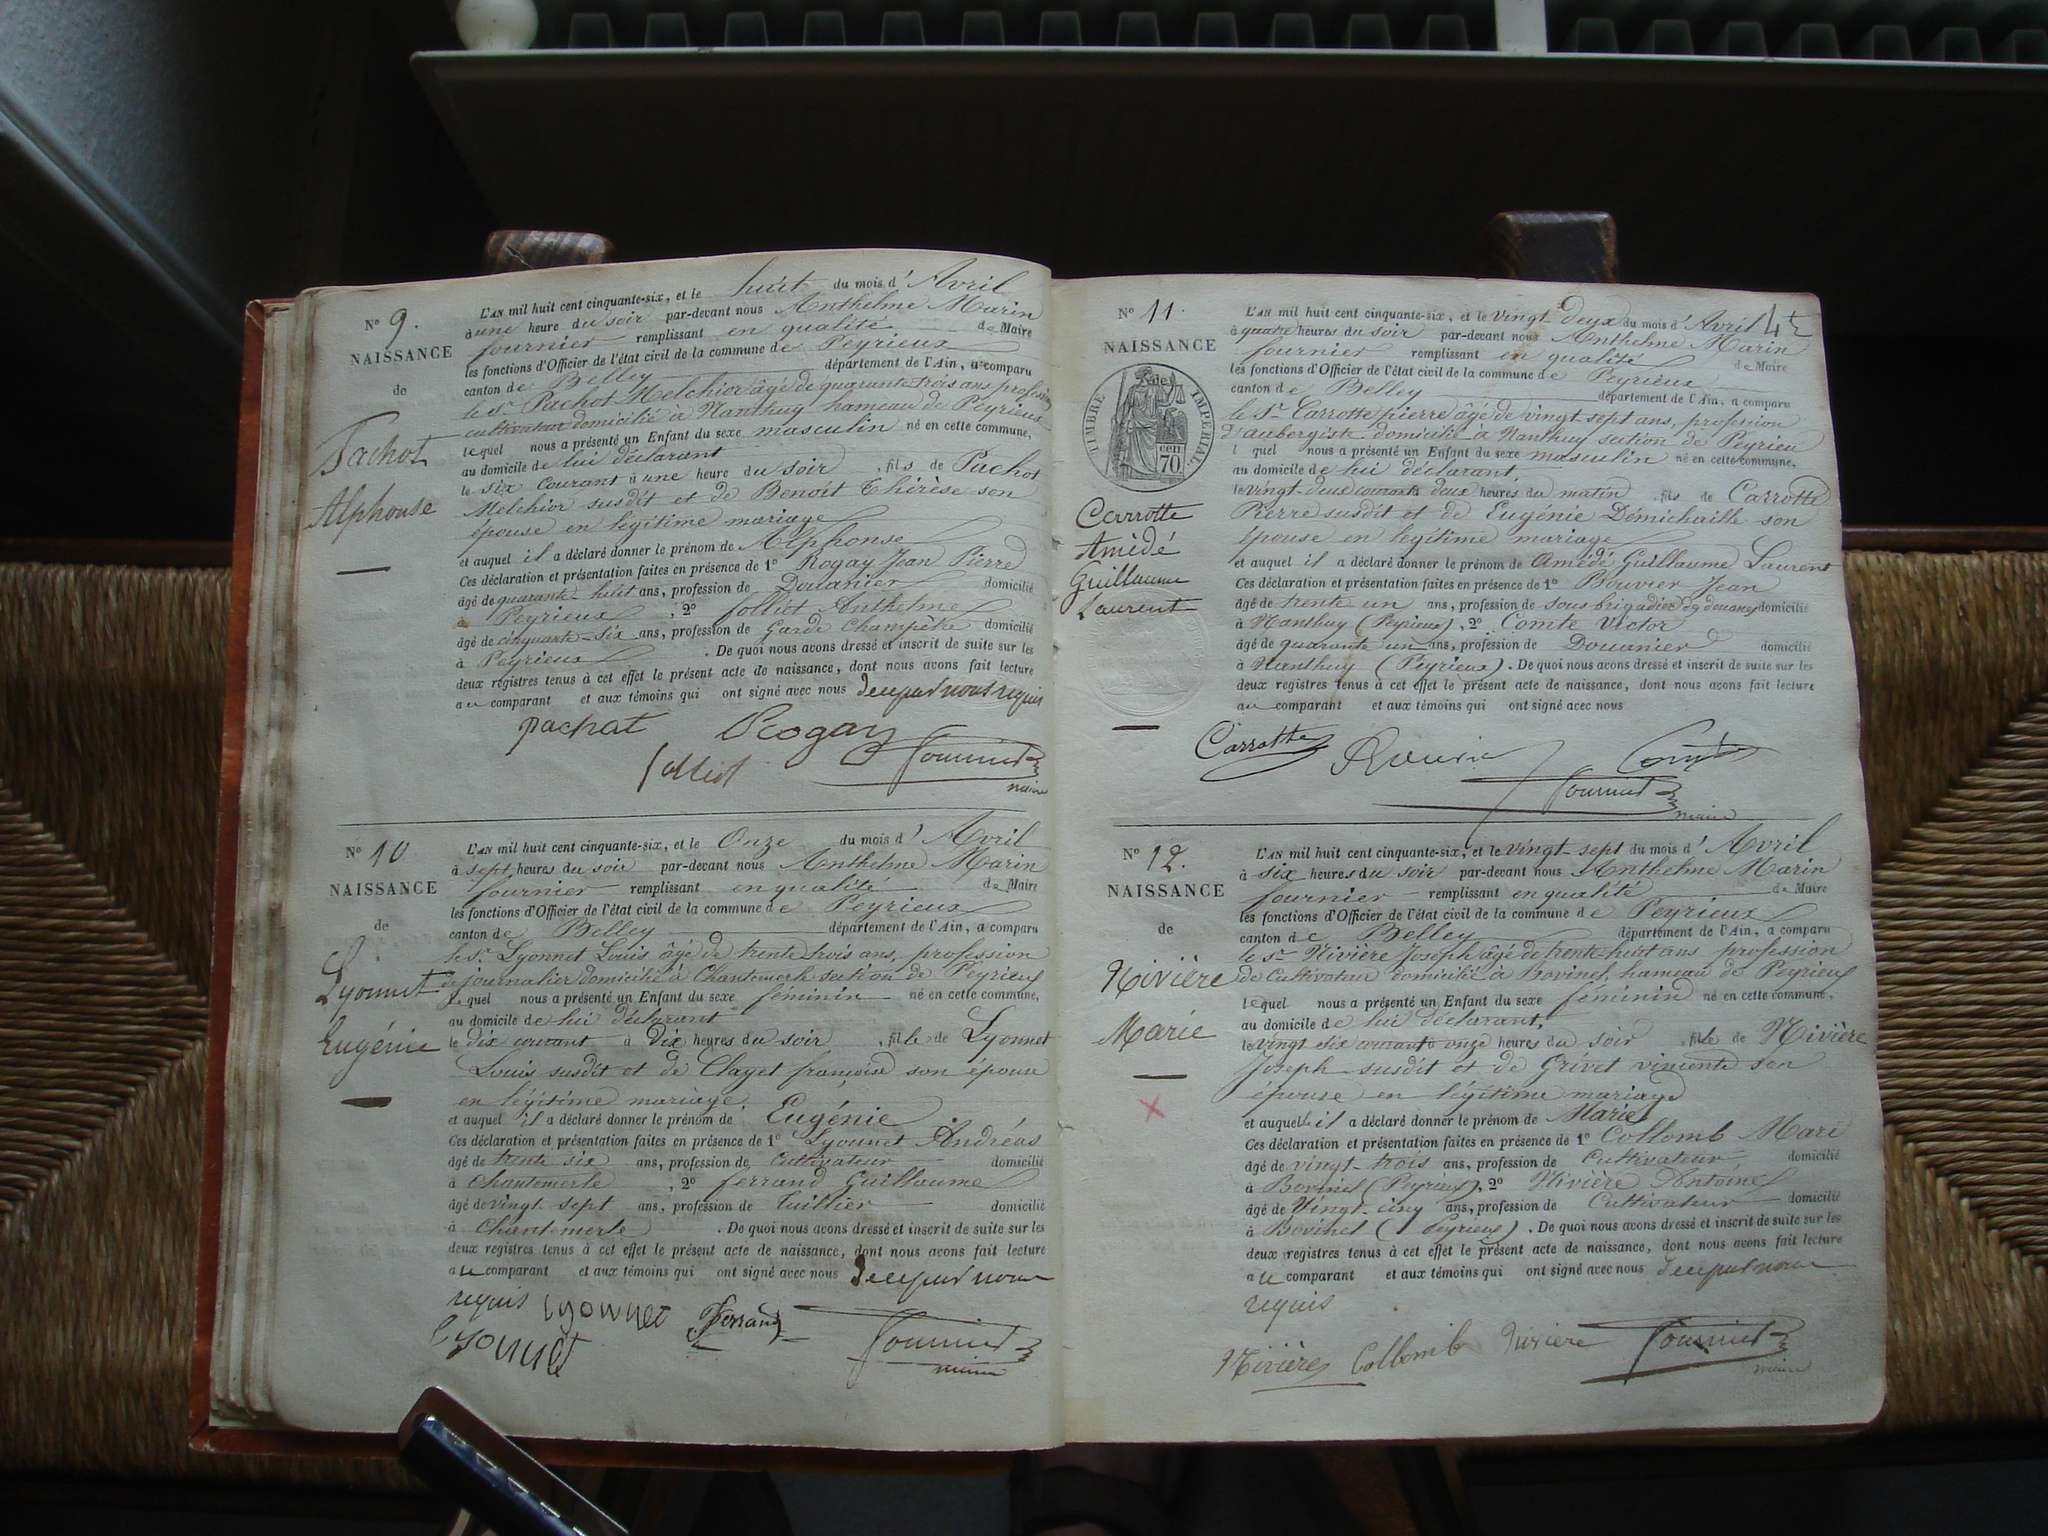 N° 9.
NAISSANCE
de
Pachot
Alphonse
L'AN mil huit cent cinquante-six, et le huit du mois d'Avril
à une heure du soir par-devant nous Anthelme Marin
fournier remplissant en qualité de Maire
les fonctions d'Officier de l'état civil de la commune de Peyrieux
canton de Belley département de l'Ain, a comparu
le sr Pachot Melchior âgé de quarante trois ans profession
cultivateur domicilié à Nanthuy hameau de Peyrieux
lequel nous a présenté un Enfant du sexe masculin né en cette commune,
au domicile de lui déclarant
le six courant à une heure du soir, fils de Pachot
Melchior susdit et de Benoit Thérèse son
épouse en légitime mariage
et auquel il a déclaré donner le prénom de Alphonse
Ces déclaration et présentation faites en présence de 1° Rogay Jean Pierre
âgé de quarante huit ans, profession de Douanier domicilié
à Peyrieux, 2° Jolliot Anthelme
âgé de cinquante-six ans, profession de Garde Champêtre domicilié
à Peyrieux. De quoi nous avons dressé et inscrit de suite sur les
deux registres tenus à cet effet le présent acte de naissance, dont nous avons fait lecture
au comparant et aux témoins qui ont signé avec nous de ce par nous requis
pachot Rogay
Jolliot fournier
maire
N° 10
NAISSANCE
de
Lyonnet
Eugénie
L'AN mil huit cent cinquante-six, et le Onze du mois d'Avril
à sept heures du soir par-devant nous Anthelme Marin
fournier remplissant en qualité de Maire
les fonctions d'Officier de l'état civil de la commune de Peyrieux
canton de Belley département de l'Ain, a comparu
le sr Lyonnet Louis âgé de trente trois ans, profession
de journalier domicilié à Chantemerle section de Peyrieux
lequel nous a présenté un Enfant du sexe féminin né en cette commune,
au domicile de lui déclarant
le dix courant à dix heures du soir, fille de Lyonnet
Louis susdit et de Clayet françoise son épouse
en légitime mariage
et auquel il a déclaré donner le prénom de Eugénie
Ces déclaration et présentation faites en présence de 1° Lyonnet Andréas
âgé de trente six ans, profession de Cultivateur domicilié
à Chantemerle, 2° ferrand Guillaume
âgé de vingt sept ans, profession de Tuillier domicilié
à Chantemerle. De quoi nous avons dressé et inscrit de suite sur les
deux registres tenus à cet effet le présent acte de naissance, dont nous avons fait lecture
au comparant et aux témoins qui ont signé avec nous de ce par nous
requis Lyonnet ferrand
Lyonnet fournier
maire
4e
N° 11.
NAISSANCE
de
TIMBRE IMPERIAL
70 cen
Carrotte
Amédé
Guillaume
Laurent
L'AN mil huit cent cinquante-six, et le vingt deux du mois d'Avril
à quatre heures du soir par-devant nous Anthelme Marin
fournier remplissant en qualité de Maire
les fonctions d'Officier de l'état civil de la commune de Peyrieux
canton de Belley département de l'Ain, a comparu
le sr Carrotte pierre âgé de vingt sept ans, profession
d'aubergiste domicilié à Nanthuy section de Peyrieu
l quel nous a présenté un Enfant du sexe masculin né en cette commune,
au domicile de lui déclarant
le vingt-deux courant à deux heures du matin, fils de Carrotte
Pierre susdit et de Eugénie Démicheille son
épouse en légitime mariage
et auquel il a déclaré donner le prénom de Amédé Guillaume Laurent
Ces déclaration et présentation faites en présence de 1° Bouvier Jean
âgé de trente un ans, profession de sous brigadier de douanes domicilié
à Nanthuy (Peyrieux), 2° Comte Victor
âgé de quarante un ans, profession de Douanier domicilié
à Nanthuy (Peyrieux). De quoi nous avons dressé et inscrit de suite sur les
deux registres tenus à cet effet le présent acte de naissance, dont nous avons fait lecture
au comparant et aux témoins qui ont signé avec nous
Carrotte Bouvier Comte
fournier
maire
N° 12.
NAISSANCE
de
Nivière
Marie
L'AN mil huit cent cinquante-six, et le vingt-sept du mois d'Avril
à six heures du soir par-devant nous Anthelme Marin
fournier remplissant en qualité de Maire
les fonctions d'Officier de l'état civil de la commune de Peyrieux
canton de Belley département de l'Ain, a comparu
le sr Nivière Joseph âgé de trente-huit ans profession
de Cultivateur domicilié à Bovinel, hameau de Peyrieux
lequel nous a présenté un Enfant du sexe féminin né en cette commune,
au domicile de lui déclarant,
le vingt six courant à onze heures du soir, fille de Nivière
Joseph susdit et de Grivet vincente son
épouse en légitime mariage
et auquel il a déclaré donner le prénom de Marie
Ces déclaration et présentation faites en présence de 1° Collomb Mari
âgé de vingt-trois ans, profession de Cultivateur domicilié
à Bovinel (Peyrieux), 2° Nivière Antoine
âgé de Vingt-cinq ans, profession de Cultivateur domicilié
à Bovinel (Peyrieux). De quoi nous avons dressé et inscrit de suite sur les
deux registres tenus à cet effet le présent acte de naissance, dont nous avons fait lecture
au comparant et aux témoins qui ont signé avec nous de ce par nous
requis
Nivière Collomb Niviere fournier
maire